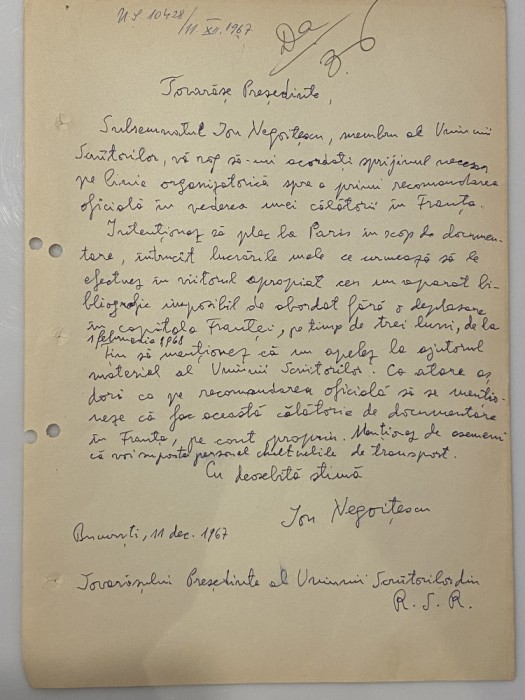 10428
11 XII. 1967
Da
Tovarășe Președinte,
Subsemnatul Ion Negoițescu, membru al Uniunii
Scriitorilor, vă rog să-mi acordați sprijinul necesar
pe linie organizatorică spre a primi recomandarea
oficială în vederea unei călătorii în Franța.
Intenționez să plec la Paris în scop de documen-
tare, întrucît lucrările mele ce urmează să le
efectuez în viitorul apropiat cer un aparat bi-
bliografic imposibil de abordat fără o deplasare
în capitala Franței, pe timp de trei luni, de la
1 februarie 1968
Țin să menționez că nu apelez la ajutorul
material al Uniunii Scriitorilor. Ca atare aș
dori ca pe recomandarea oficială să se mențio-
neze că fac această călătorie de documentare
în Franța, pe cont propriu. Menționez de asemeni
că voi suporta personal cheltuielile de transport.
Cu deosebită stimă
Ion Negoițescu
București, 11 dec. 1967
Tovarășului Președinte al Uniunii Scriitorilor din
R. S. R.